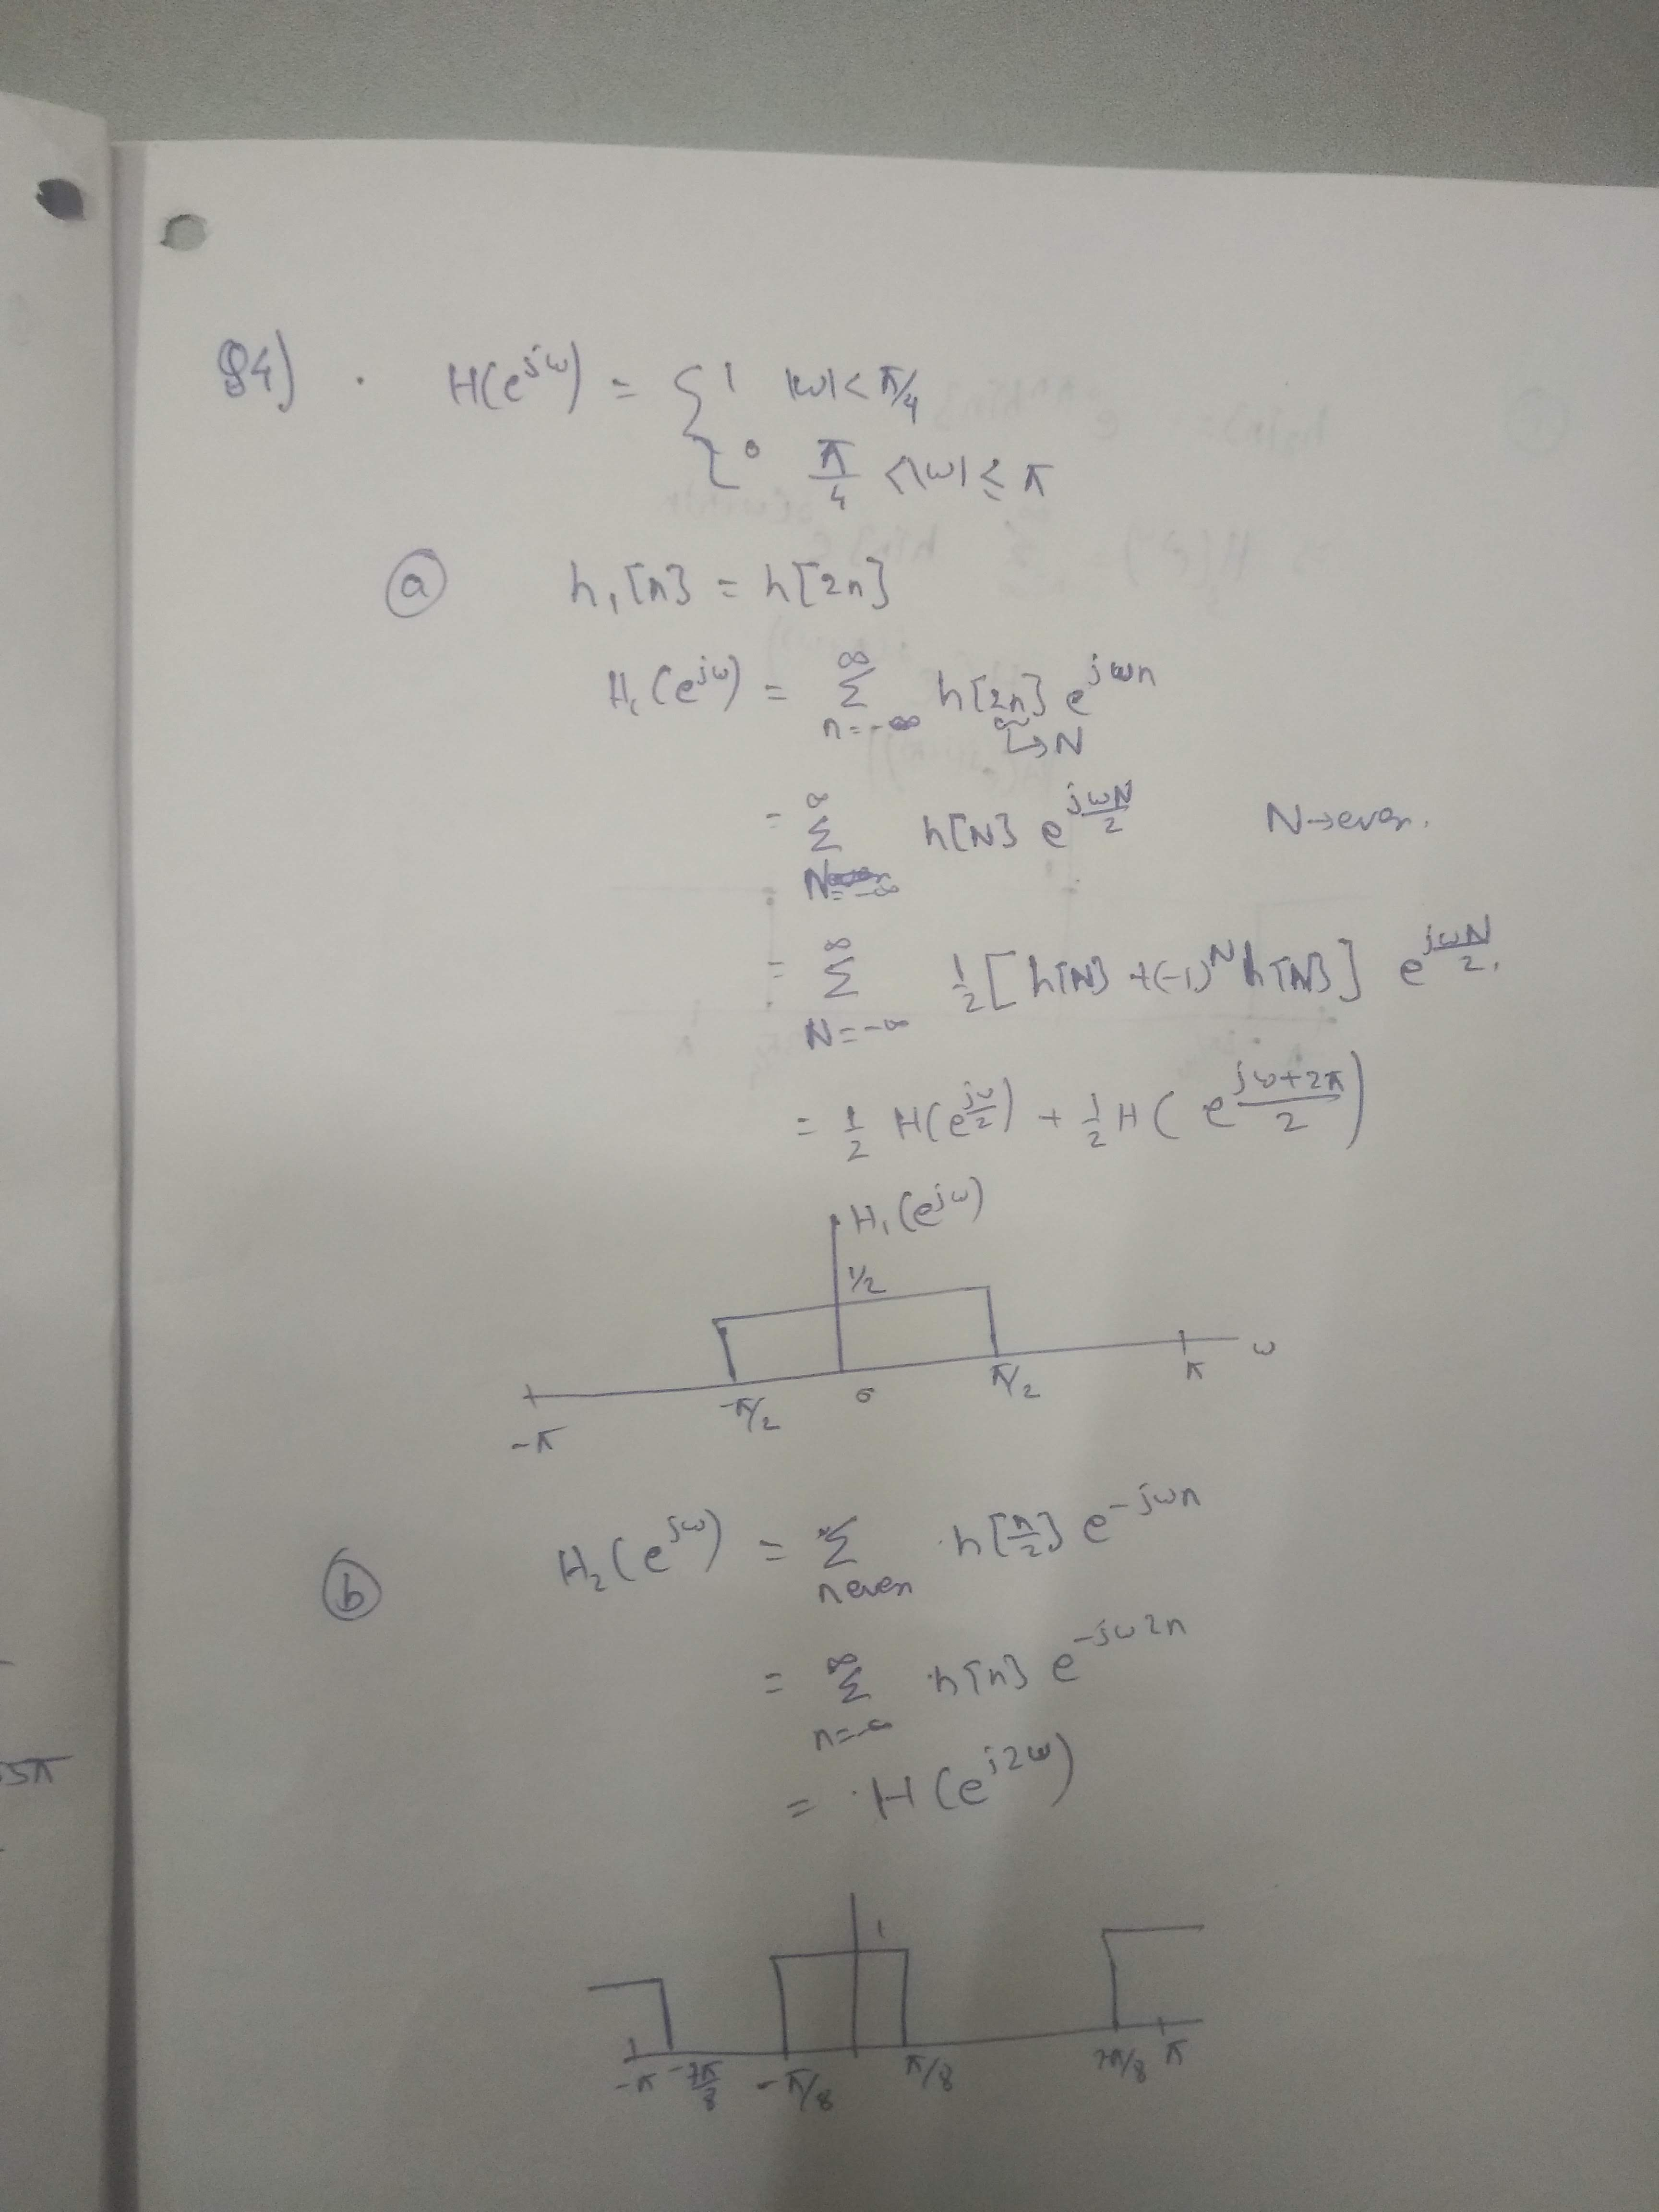 Q4) . H(e^{jω}) = { 1 |ω| < π/4
0 π/4 < |ω| ≤ π
(a) h₁[n] = h[2n]
H₁(e^{jω}) = ∑_{n=-∞}^{∞} h[2n] e^{jωn}
↳N
= ∑_{N=-∞}^{∞} h[N] e^{jωN/2} N→even.
= ∑_{N=-∞}^{∞} 1/2 [h[N] + (-1)^N h[N]] e^{jωN/2}.
= 1/2 H(e^{jω/2}) + 1/2 H(e^{(jω+2π)/2})
H₁(e^{jω})
1/2
-π -π/2 0 π/2 π ω
(b) H₂(e^{jω}) = ∑_{n even} h[n/2] e^{-jωn}
= ∑_{n=-∞}^{∞} h[n] e^{-jω2n}
= H(e^{j2ω})
1
-π -7π/8 -π/8 π/8 7π/8 π
5π